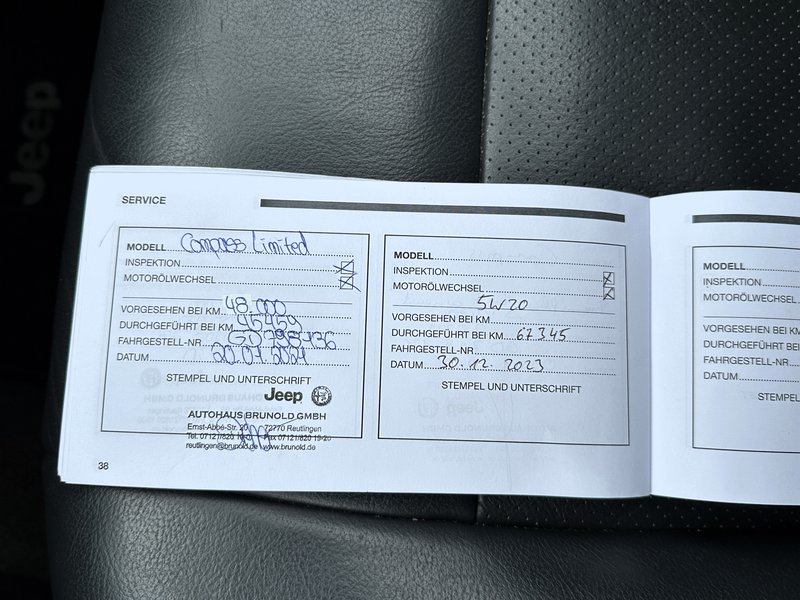 Jeep
SERVICE
MODELL Compass Limited
INSPEKTION
MOTORÖLWECHSEL
VORGESEHEN BEI KM 48.000
DURCHGEFÜHRT BEI KM 45459
FAHRGESTELL-NR.
DATUM
STEMPEL UND UNTERSCHRIFT
Jeep
AUTOHAUS BRUNOLD GMBH
Ernst-Abbé-Str. 20 72770 Reutlingen
Tel. 07121/820 Fax 07121/820 19-20
reutlingen@brunold.de www.brunold.de
38
MODELL
INSPEKTION
MOTORÖLWECHSEL
5W20
VORGESEHEN BEI KM
DURCHGEFÜHRT BEI KM 67345
FAHRGESTELL-NR.
DATUM 30.12.2023
STEMPEL UND UNTERSCHRIFT
MODELL
INSPEKTION
MOTORÖLWECHSEL
VORGESEHEN BEI
DURCHGEFÜHRT
FAHRGESTELL-NR.
DATUM
STEMPEL